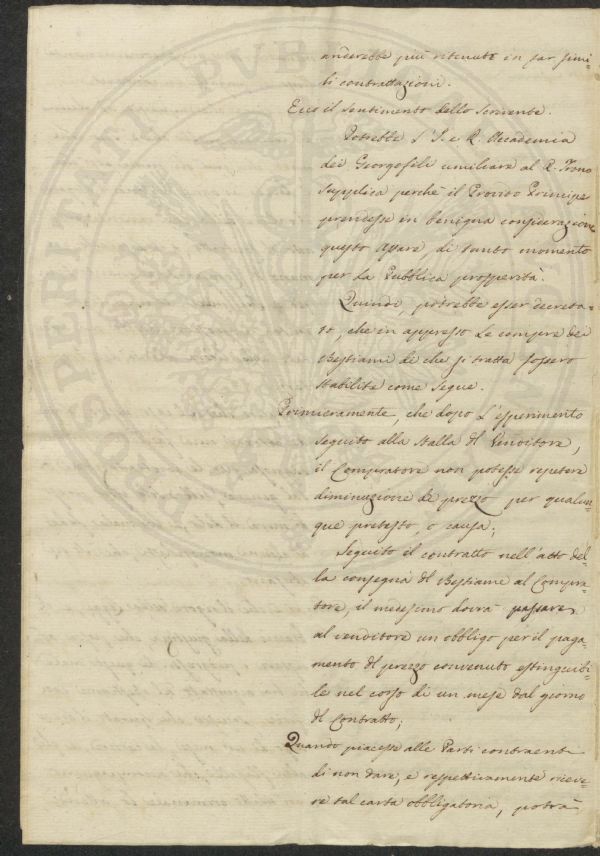 anderebbe più ritenuto in far simi-
li contrattazioni.
Ecco il sentimento dello scrivente.
Potrebbe l'I. e R. Accademia
dei Georgofili umiliare al R. Trono
supplica perchè il Provido Principe
prendesse in benigna considerazione
questo affare, di tanto momento
per la Pubblica prosperità.
Quindi, potrebbe esser decreta-
to, che in appresso le compre dei
Bestiami di che si tratta fossero
stabilite come segue.
Primieramente, che dopo l'esperimento
seguito alla stalla del Venditore,
il Compratore non potesse repetere
diminuzione di prezzo per qualun-
que pretesto, o causa;
Seguito il contratto nell'atto del-
la consegna del Bestiame al Compra-
tore, il medesimo dovrà passare
al venditore un obbligo per il paga-
mento del prezzo convenuto estinguibi-
le nel corso di un mese dal giorno
del Contratto;
Quando piacesse alle Parti contraenti
di non dare, e respettivamente riceve-
re tal carta obbligatoria, potrà